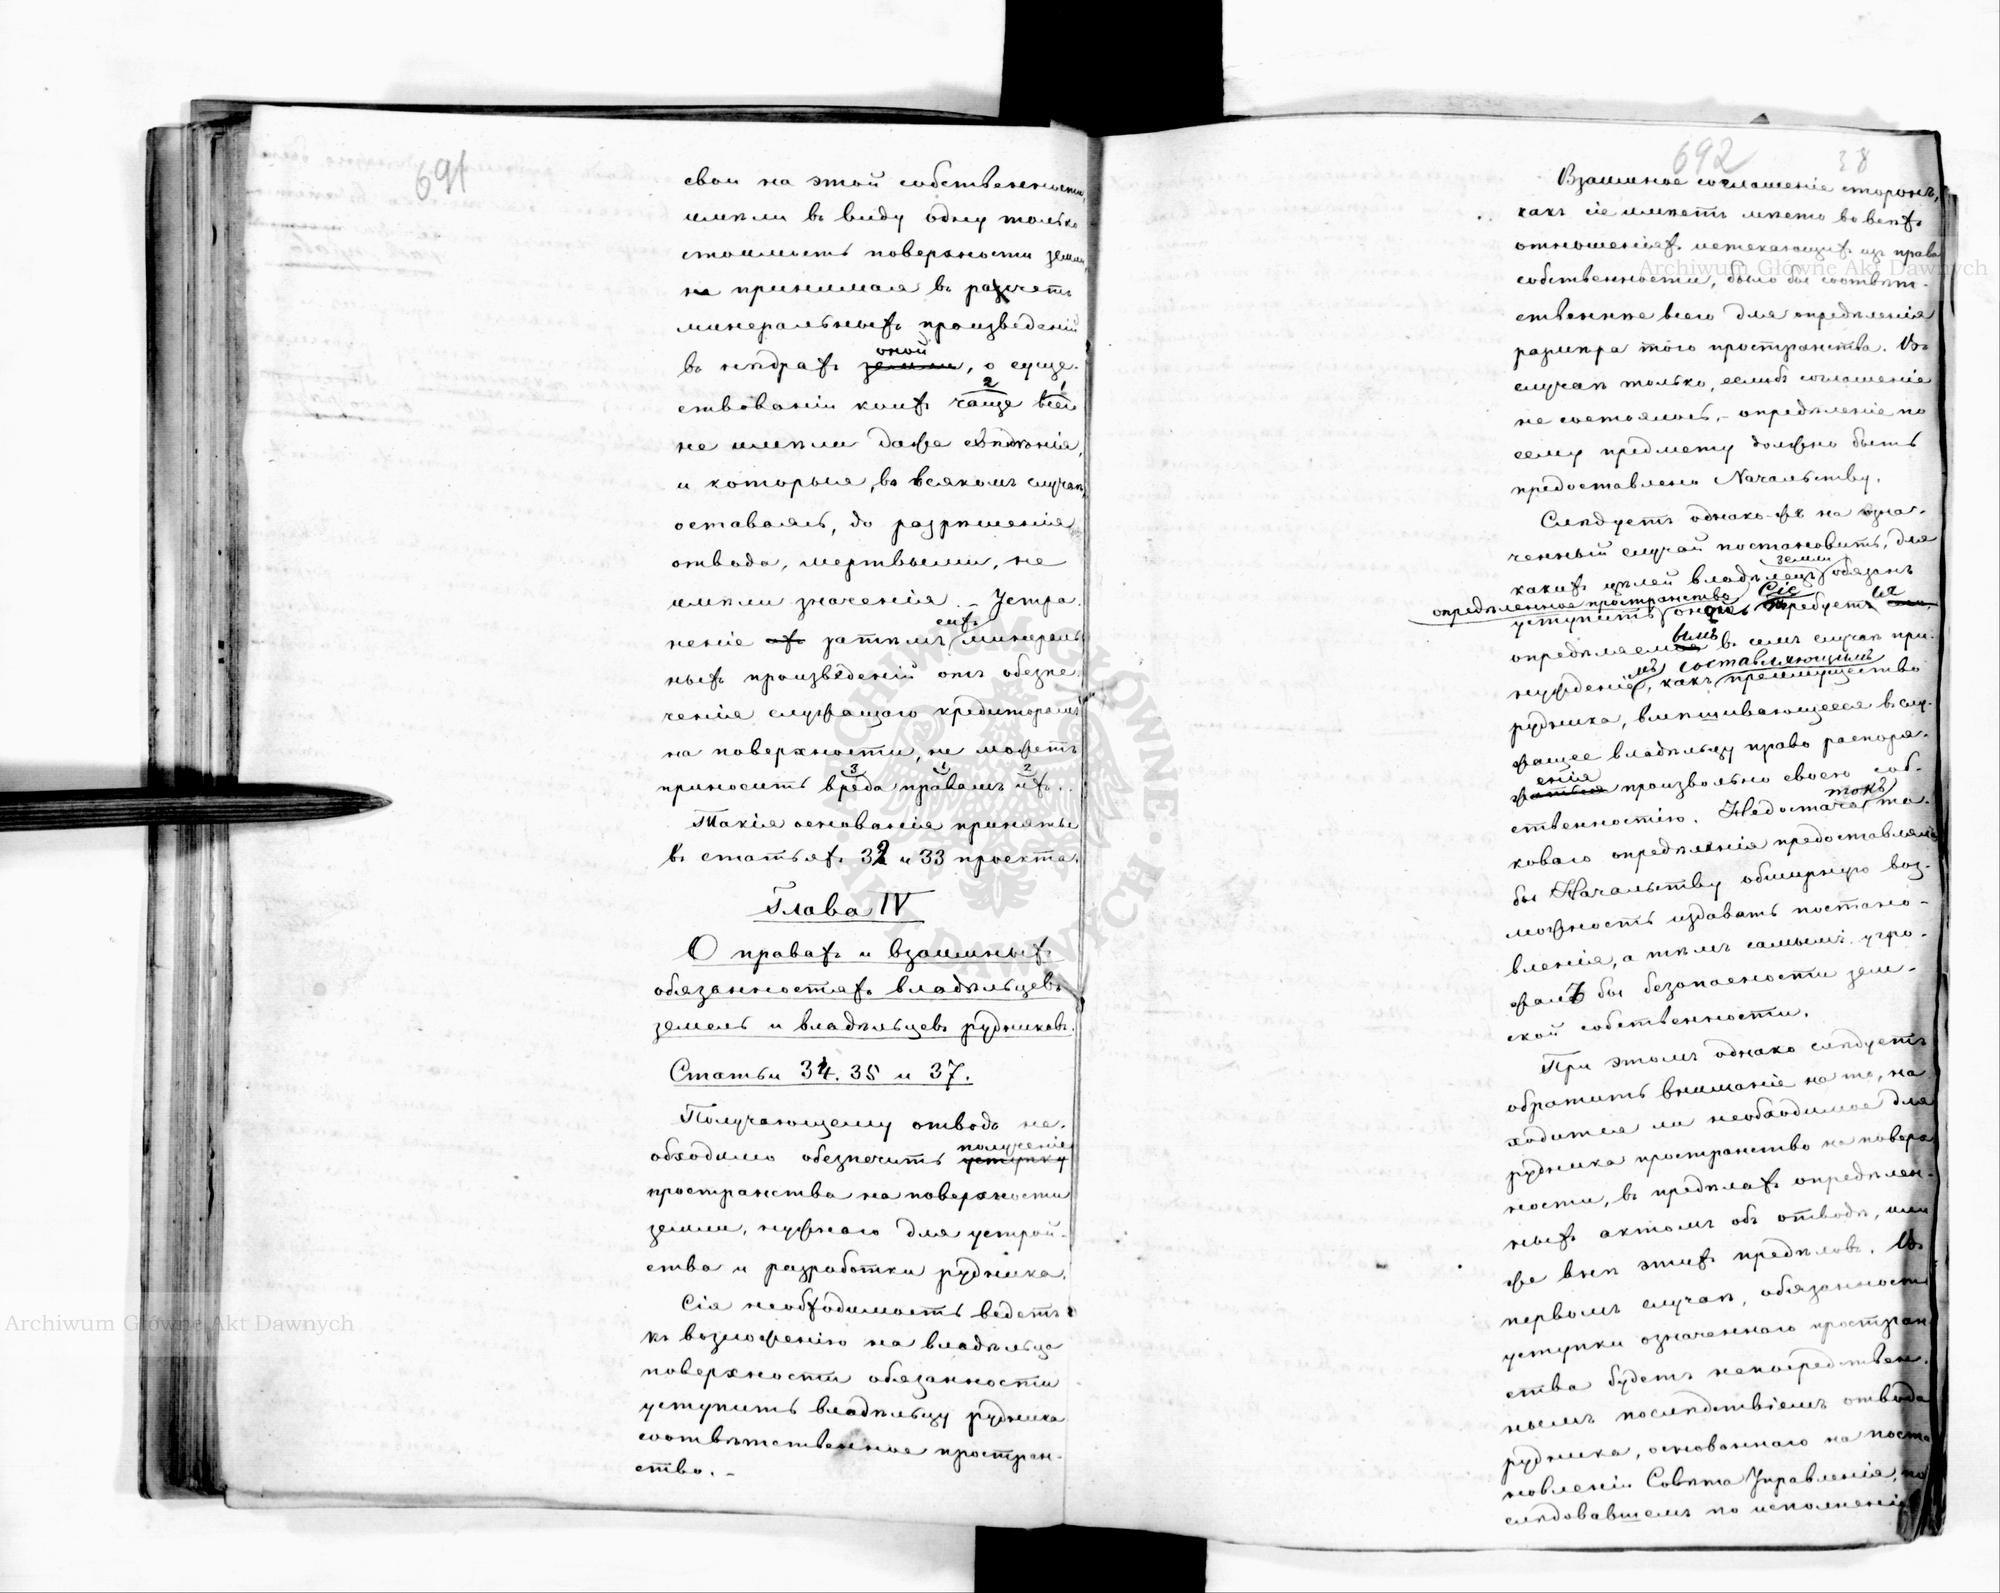 691
свои на этой собственности,
имѣли въ виду одну только
стоимость поверхности земли,
не принимая въ разсчетъ
минеральныхъ произведеній
оной
въ нѣдрахъ земли, о суще-
2 1
ствованіи коихъ чаще всего
не имѣли даже свѣдѣнія,
и которыя, во всякомъ случаѣ,
оставаясь, до разрѣшенія
отвода, мертвыми, не
имѣли значенія. – Устра-
сихъ
неніе затѣмъ минераль-
ныхъ произведеній отъ обезпе-
ченія служащаго кредиторамъ
на поверхности, не можетъ
3 1 2
приносить вреда правамъ ихъ.
Такія основанія приняты
въ статьяхъ 32 и 33 проекта.
Глава IV
О правахъ и взаимныхъ
обязанностяхъ владѣльцевъ
земель и владѣльцевъ рудниковъ.
Статьи 34. 35 и 37.
Получающему отводъ не-
полученіе
обходимо обезпечить уступку
пространства на поверхности
земли, нужнаго для устрой-
ства и разработки рудника.
Сія необходимость ведетъ
къ возложенію на владѣльца
поверхности обязанности
уступить владѣльцу рудника
соотвѣтственное простран-
ство. –
692 38
Взаимное соглашеніе сторонъ,
какъ сіе имѣетъ мѣсто во всѣхъ
отношеніяхъ истекающихъ изъ права
собственности, было бы соотвѣт-
ственнѣе всего для опредѣленія
размѣра того пространства. Въ
случаѣ только, еслибъ соглашеніе
не состоялось, – опредѣленіе по
сему предмету должно быть
предоставлено Начальству.
Слѣдуетъ однако-жъ на озна-
ченный случай постановить, для
земли
какихъ цѣлей владѣлецъ обязанъ
опредѣленное пространство Сіе
уступить оной требуетъ
вымъ
опредѣляемо въ семъ случаѣ при-
мъ составляющимъ
нужденіе, какъ преимущество
рудника, вмѣшивающееся въ слу-
жащее владѣльцу право распоря-
женія
жаться произвольно своею соб-
токъ
ственностію. Недостача та-
коваго опредѣленія предоставляла
бы Начальству обширную воз-
можность издавать постано-
вленія, а тѣмъ самымъ угро-
жалъ бы безопасности зем-
ской собственности.
При этомъ однако слѣдуетъ
обратить вниманіе на то, на-
ходится ли необходимое для
рудника пространство на поверх-
ности, въ предѣлахъ опредѣлен-
ныхъ актомъ объ отводѣ, или
же внѣ этихъ предѣловъ. Въ
первомъ случаѣ, обязанность
уступки означеннаго простран-
ства будетъ непосредствен-
нымъ послѣдствіемъ отвода
рудника, основаннаго на поста-
новленіи Совѣта Управленія, по-
слѣдовавшемъ по исполненіи
Archiwum Główne Akt Dawnych
Archiwum Główne Akt Dawnych
ARCHIWUM GŁÓWNE AKT DAWNYCH